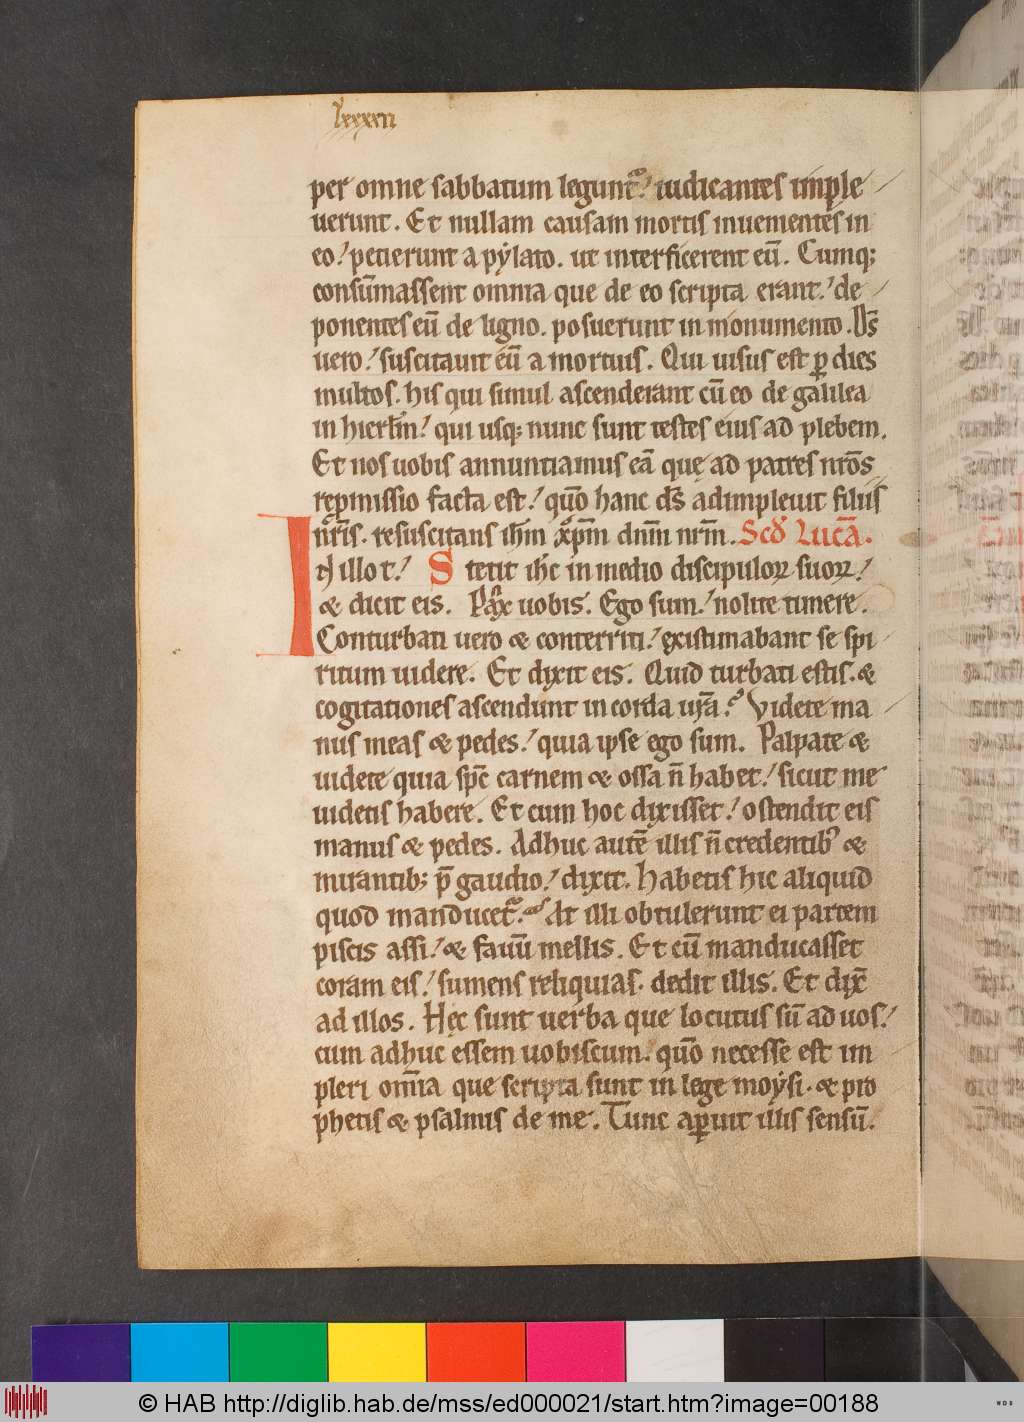 lxxxxii
per omne sabbatum legunt᷑. iudicantes imple
uerunt. Et nullam causam mortis inuenientes in
eo. petierunt a pẏlato. ut interficerent eū. Cumq;
consūmassent omnia que de eo scripta erant. de
ponentes eū de ligno. posuerunt in monumento. Ds̄
uero. suscitauit eū a mortuis. Qui uisus est ꝑ dies
multos. his qui simul ascenderant cū eo de galilea
in hierl̄m. qui usq; nunc sunt testes eius ad plebem.
Et nos uobis annuntiamus eā quę ad patres nr̄os
repmissio facta est. quō hanc ds̄ adimpleuit filiis
nr̄is. resuscitans ih̄m xp̄m dn̄m nr̄m. Scd̄ Lucā.
IN illo t. Stetit ih̄c in medio discipuloꝝ suoꝝ.
& dicit eis. Pax uobis. Ego sum. nolite timere.
Conturbati uero & conterriti. existimabant se spi
ritum uidere. Et dixit eis. Quid turbati estis. &
cogitationes ascendunt in corda ur̄a. Videte ma
nus meas & pedes. quia ipse ego sum. Palpate &
uidete quia sp̄c carnem & ossa n̄ habet. sicut me
uidetis habere. Et cum hoc dixisset. ostendit eis
manus & pedes. Adhuc autē illis n̄ credentib᾿ &
mirantib; p̄ gaudio. dixit. Habetis hic aliquid
quod manducet᷑. At illi obtulerunt ei partem
piscis assi. & fauū mellis. Et cū manducasset
coram eis. sumens reliquias. dedit illis. Et dix̄
ad illos. Hęc sunt uerba que locutus sū ad uos.
cum adhuc essem uobiscum. quō necesse est im
pleri om̄ia que scripta sunt in lege moẏsi. & pro
phetis & psalmis de me. Tunc aꝑuit illis sensū.
© HAB http://diglib.hab.de/mss/ed000021/start.htm?image=00188